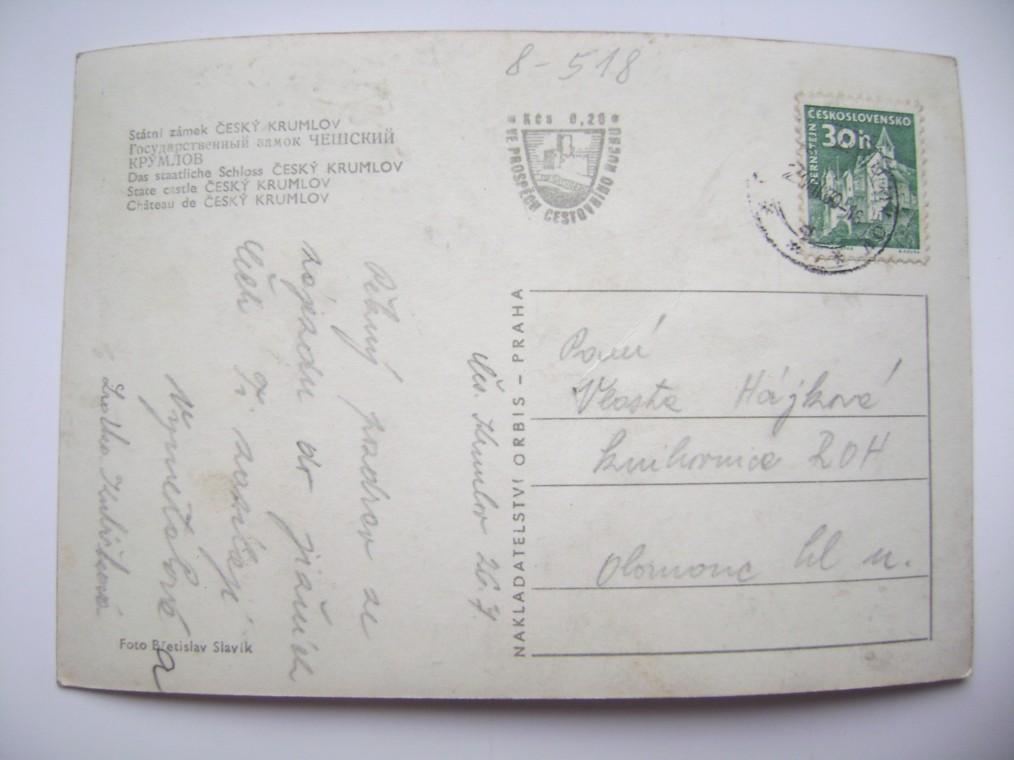 8-518
Státní zámek ČESKÝ KRUMLOV
Государственный замок ЧЕШСКИЙ
КРУМЛОВ
Das staatliche Schloss ČESKÝ KRUMLOV
State castle ČESKÝ KRUMLOV
Château de ČESKÝ KRUMLOV
Kčs 0,20
VE PROSPĚCH CESTOVNÍHO RUCHU
ČESKOSLOVENSKO
30h
PERNŠTEJN
Čes. Krumlov 26.7
Pěkný pozdrav ze
zájezdu po jižních
Čech Ti zasílají
Vymětalová
a
NAKLADATELSTVÍ ORBIS – PRAHA
Paní
Vlasta Hájková
knihovnice ROH
Olomouc hl n.
Foto Břetislav Slavík